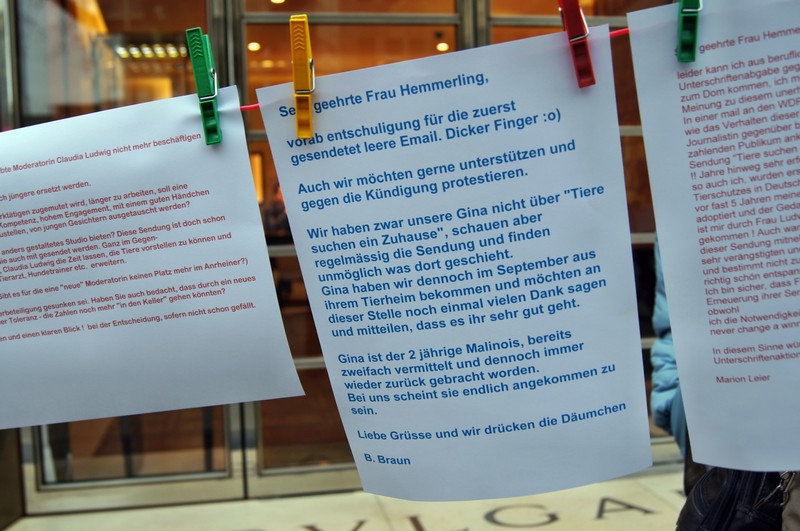 bte Moderatorin Claudia Ludwig nicht mehr beschäftigen
ch jüngere ersetzt werden.
rktätigen zugemutet wird, länger zu arbeiten, soll eine
Kompetenz, hohem Engagement, mit einem guten Händchen
ustellen, von jungen Gesichtern ausgetauscht werden?
anders gestaltetes Studio bieten? Diese Sendung ist doch schon
ie auch mit gesendet werden. Ganz im Gegen-
Claudia Ludwig die Zeit lassen, die Tiere vorstellen zu können und
Tierarzt, Hundetrainer etc. erweitern.
ibt es für die eine "neue" Moderatorin keinen Platz mehr im Anrheiner?)
erbeteiligung gesunken sei. Haben Sie auch bedacht, dass durch ein neues
er Toleranz - die Zahlen noch mehr "in den Keller" gehen könnten?
en und einen klaren Blick ! bei der Entscheidung, sofern nicht schon gefällt.
Se geehrte Frau Hemmerling,
vorab entschuligung für die zuerst
gesendetet leere Email. Dicker Finger :o)
Auch wir möchten gerne unterstützen und
gegen die Kündigung protestieren.
Wir haben zwar unsere Gina nicht über "Tiere
suchen ein Zuhause", schauen aber
regelmässig die Sendung und finden
unmöglich was dort geschieht.
Gina haben wir dennoch im September aus
ihrem Tierheim bekommen und möchten an
dieser Stelle noch einmal vielen Dank sagen
und mitteilen, dass es ihr sehr gut geht.
Gina ist der 2 jährige Malinois, bereits
zweifach vermittelt und dennoch immer
wieder zurück gebracht worden.
Bei uns scheint sie endlich angekommen zu
sein.
Liebe Grüsse und wir drücken die Däumchen
B. Braun
geehrte Frau Hemme
leider kann ich aus beruflic
Unterschriftenabgabe geg
zum Dom kommen, ich m
Meinung zu diesem uner
In einer mail an den WDR
wie das Verhalten dieser
Journalistin gegenüber b
zahlenden Publikum an
Sendung "Tiere suchen
!! Jahre hinweg sehr erf
so auch ich, wurden ers
Tierschutzes in Deutsc
vor fast 5 Jahren meine
adoptiert und der Geda
ist mir durch Frau Ludw
gekommen ! Auch war
dieser Sendung mitne
sehr verängstigten un
und bestimmt nicht zu
richtig schön entspan
Ich bin sicher, dass F
Erneuerung ihrer Ser
obwohl
ich die Notwendigkei
never change a winn
In diesem Sinne wün
Unterschriftenaktion
Marion Leier
VLGA